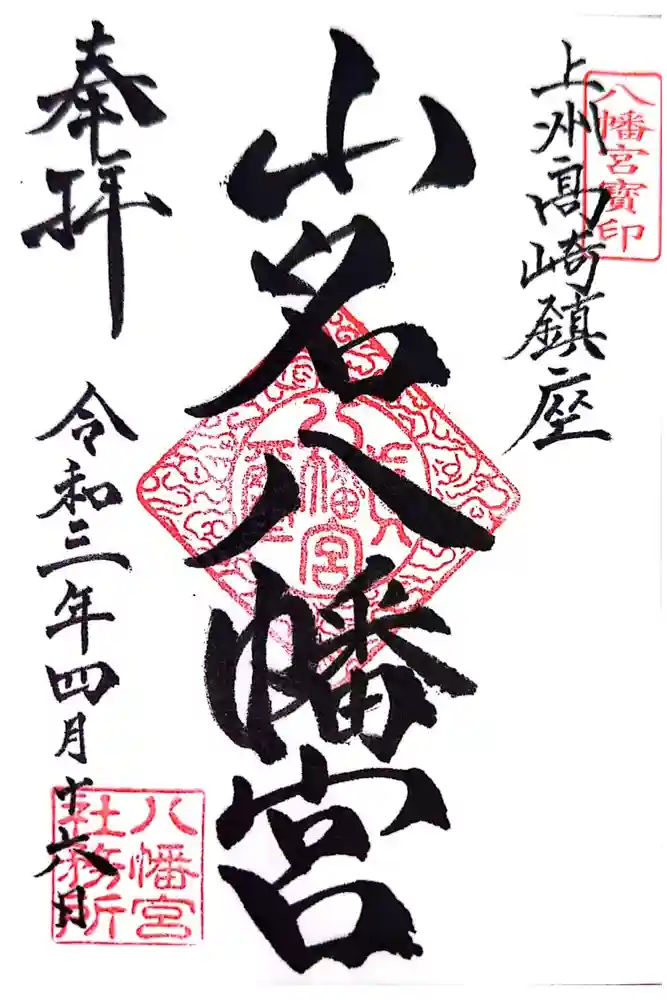 八幡宮寶印
上州髙崎鎮座
山名八幡宮
八幡宮
奉拝
令和三年四月十六日
八幡宮
社務所